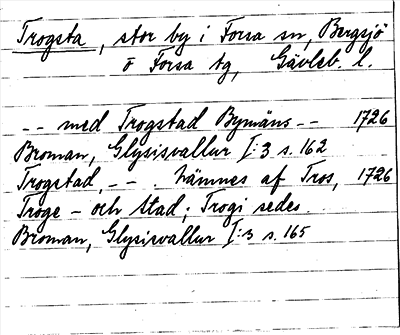 Trogsta, stor by i Forsa sn, Bergsjö
o Forsa tg, Gävleb. l.
-- med Trogstad Bymäns -- 1726
Broman, Glysisvallur I:3 s. 162
Trogstad, -- . nämnes af Tros, 1726
Troge - och stad; Trogi sedes.
Broman, Glysisvallur I:3 s. 165